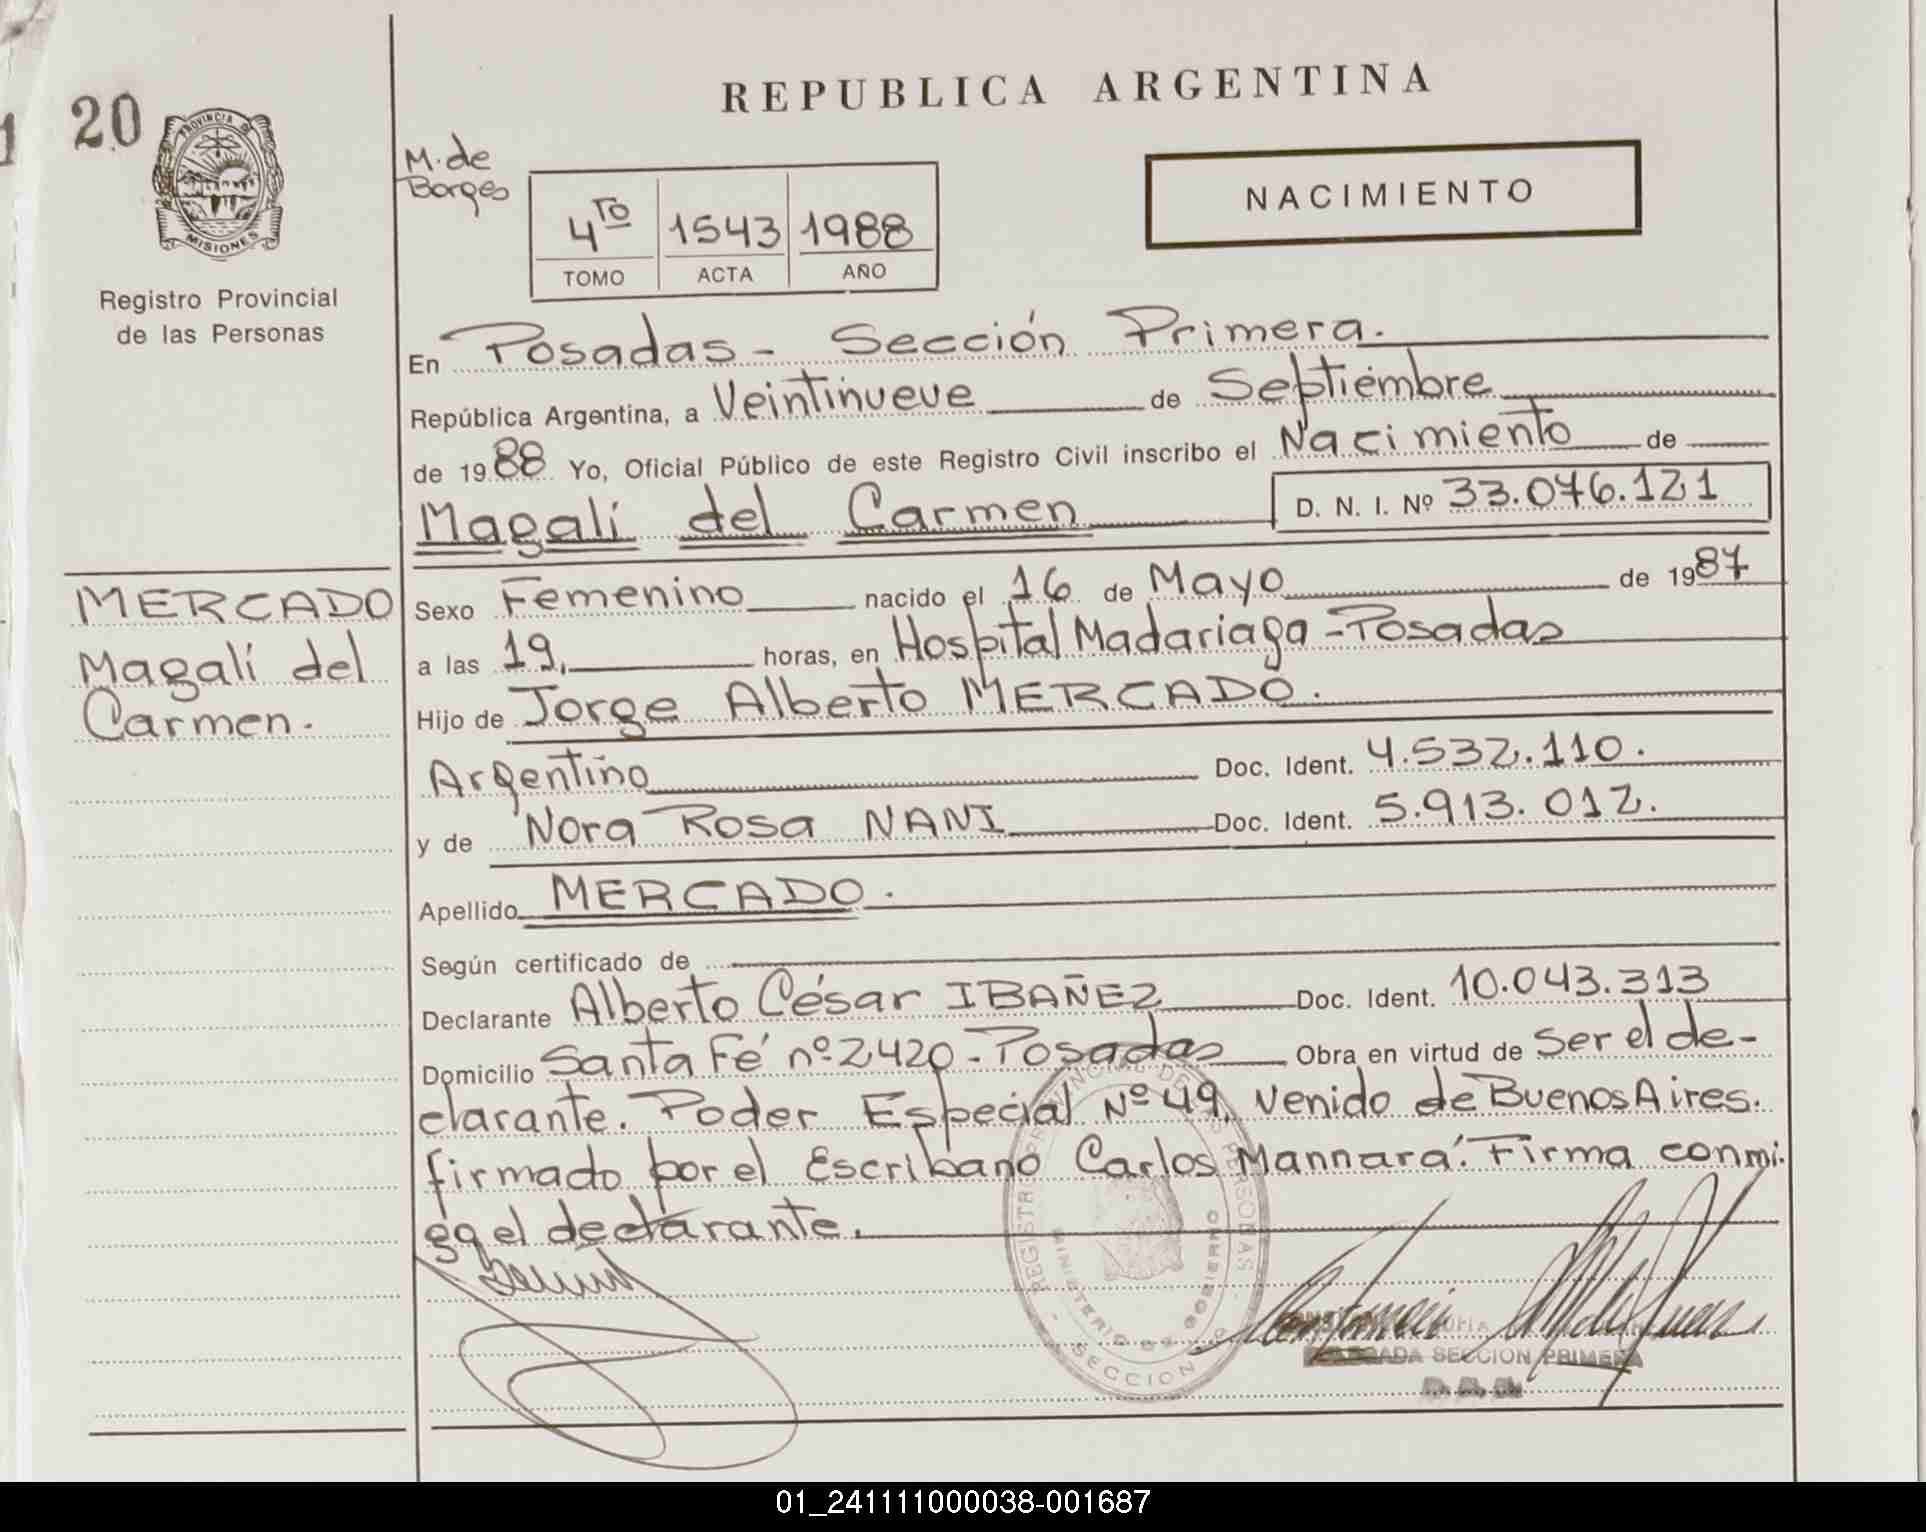 20
REPUBLICA ARGENTINA
PROVINCIA DE
MISIONES
Registro Provincial
de las Personas
M. de
Borges
4TO 1543 1988
TOMO ACTA AÑO
NACIMIENTO
En Posadas - Sección Primera.
República Argentina, a Veintinueve de Septiembre
de 1988 Yo, Oficial Público de este Registro Civil inscribo el Nacimiento de
Magalí del Carmen D. N. I. Nº 33.076.121
MERCADO
Magalí del
Carmen.
Sexo Femenino nacido el 16 de Mayo de 1987
a las 19, horas, en Hospital Madariaga - Posadas
Hijo de Jorge Alberto MERCADO.
Argentino Doc. Ident. 4.532.110.
y de Nora Rosa NANI Doc. Ident. 5.913.012.
Apellido MERCADO.
Según certificado de
Declarante Alberto César IBAÑEZ Doc. Ident. 10.043.313
Domicilio Santa Fé nº 2420 - Posadas Obra en virtud de Ser el de-
clarante. Poder Especial Nº 49, venido de Buenos Aires.
firmado por el Escribano Carlos Mannará. Firma conmi.
go el declarante.
REGISTRO PROVINCIAL DE LAS PERSONAS
MINISTERIO DE GOBIERNO
SECCION
DELEGADA SECCION PRIMERA
01_241111000038-001687